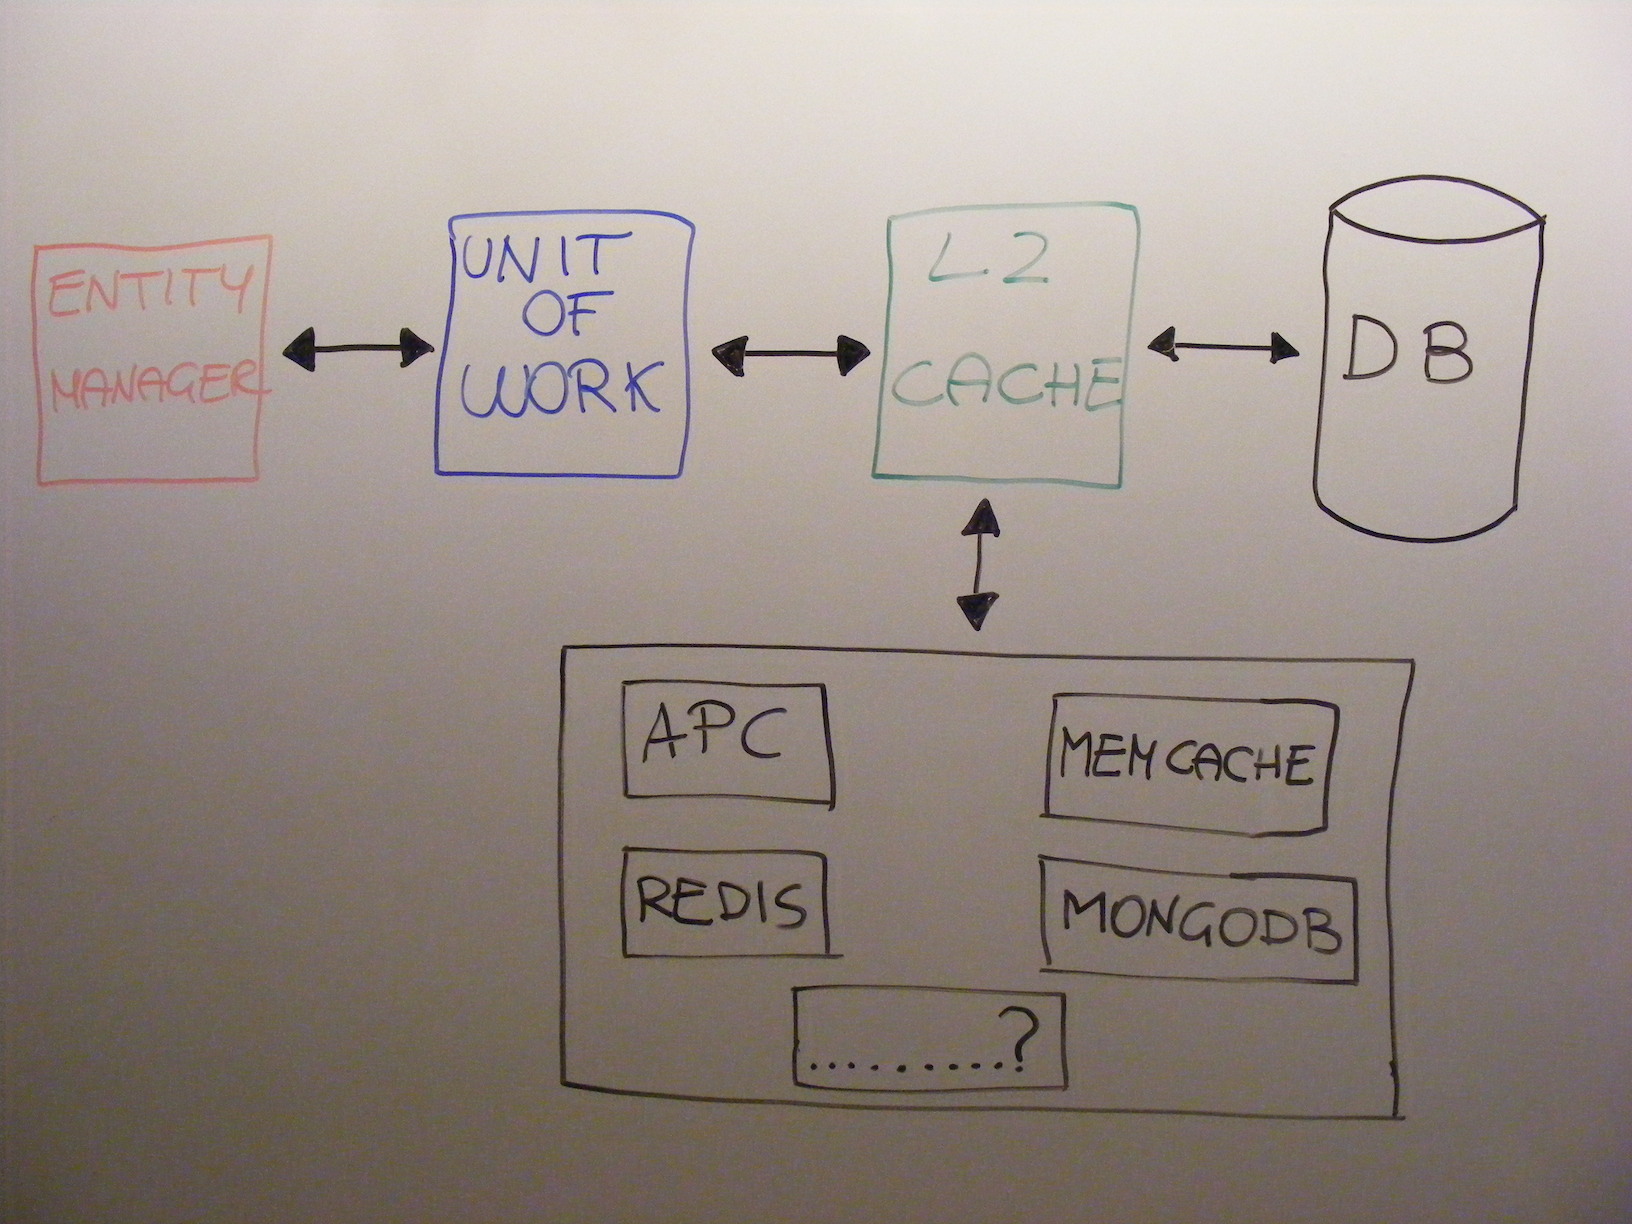 ENTITY
MANAGER
UNIT
OF
WORK
L2
CACHE
DB
APC
MEMCACHE
REDIS
MONGODB
.........?